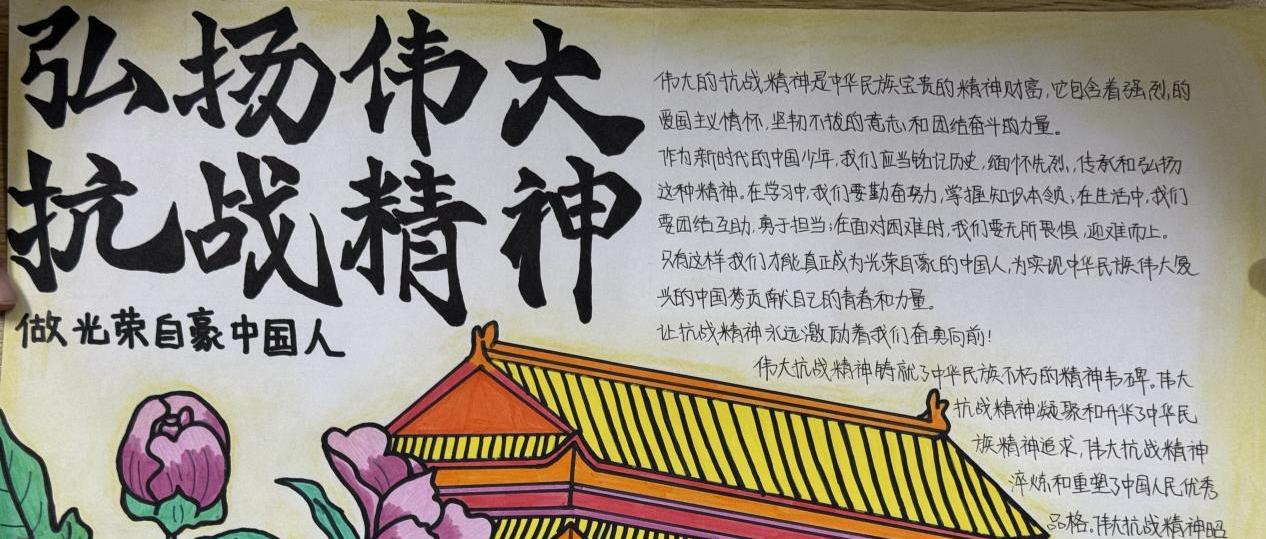 弘扬伟大
抗战精神
做光荣自豪中国人
伟大的抗战精神是中华民族宝贵的精神财富,它包含着强烈的
爱国主义情怀,坚韧不拔的意志和团结奋斗的力量。
作为新时代的中国少年,我们应当铭记历史,缅怀先烈,传承和弘扬
这种精神。在学习中,我们要勤奋努力,掌握知识本领;在生活中,我们
要团结互助,勇于担当;在面对困难时,我们要无所畏惧,迎难而上。
只有这样我们才能真正成为光荣自豪的中国人,为实现中华民族伟大复
兴的中国梦贡献自己的青春和力量。
让抗战精神永远激励着我们奋勇向前!
伟大抗战精神铸就了中华民族不朽的精神丰碑。伟大
抗战精神凝聚和升华了中华民
族精神追求,伟大抗战精神
淬炼和重塑了中国人民优秀
品格。伟大抗战精神昭